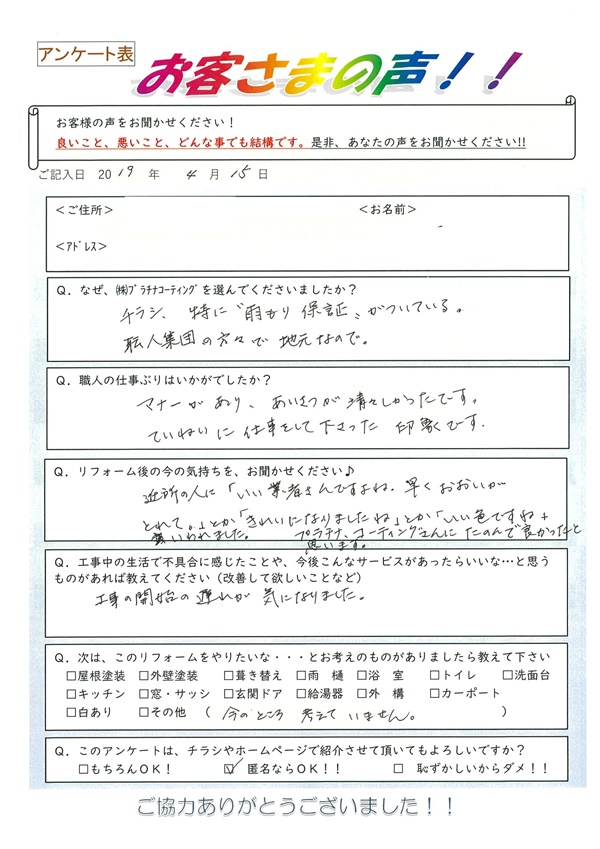 アンケート表
お客さまの声！！
お客様の声をお聞かせください！
良いこと、悪いこと、どんな事でも結構です。是非、あなたの声をお聞かせください!!
ご記入日 2019 年 4 月 15 日
＜ご住所＞ ＜お名前＞
＜ｱﾄﾞﾚｽ＞
Q．なぜ、㈱ﾌﾟﾗﾁﾅｺｰﾃｨﾝｸﾞを選んでくださいましたか？
チラシ、特に〝雨もり 保証〟がついている。
職人集団の方々で 地元なので。
Q．職人の仕事ぶりはいかがでしたか？
マナーがあり、あいさつが清々しかったです。
ていねいに 仕事をして下さった 印象です.
Q．リフォーム後の今の気持ちを、お聞かせください♪
近所の人に「いい業者さんですよね.早くおおいが
とれて。」とか「きれいになりましたね」とか「いい色ですね」
言われました。 プラチナ、コーティングさんに たのんで良かったと
思います。
Q．工事中の生活で不具合に感じたことや、今後こんなサービスがあったらいいな…と思う
ものがあれば教えてください（改善して欲しいことなど）
工事の開始の遅れが 気になりました。
Q．次は、このリフォームをやりたいな・・・とお考えのものがありましたら教えて下さい
□屋根塗装 □外壁塗装 □葺き替え □雨 樋 □浴 室 □トイレ □洗面台
□キッチン □窓・サッシ □玄関ドア □給湯器 □外 構 □カーポート
□白あり □その他 （ 今のところ 考えて いません。 ）
Q．このアンケートは、チラシやホームページで紹介させて頂いてもよろしいですか？
□もちろんOK！ ☑ 匿名ならOK！！ □ 恥ずかしいからダメ！！
ご協力ありがとうございました！！